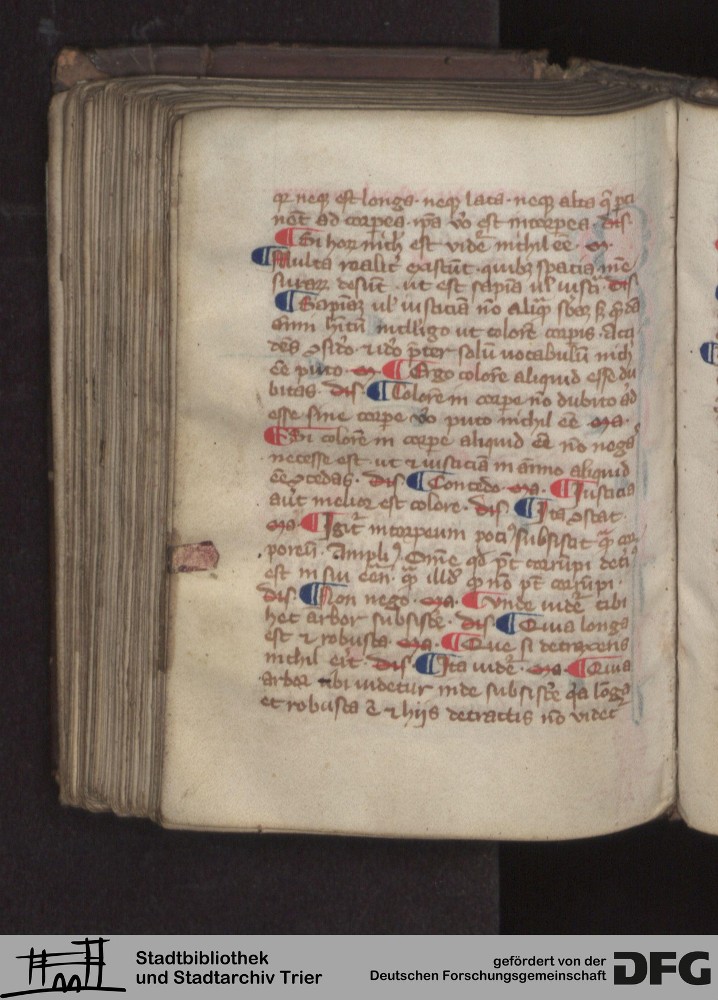 qr neq; est longa · neq; lata · neq; alta q̄ p̄ti
nēt ad corpea · ip̄a v̊o est incorpea · dis
Si hor nich̄ est videt̄ nichil eē · m̄
Multa realit̄ existūt · quibz spacia mē
surar̄ desūt · ut est sapīa ul' iusti · dis
Sapīaꝫ ul' iusticiaꝫ nō aliq̄
aīm intelligo ut colorē corpis ·
p̄ter solū uocabulū nich̄
eē puto · m̄ · Ergo colorē aliquid esse du
bitas · dis · Colorē in corpe nō dubito ad
esse sine corpe v̊o puto nichil eē · ma ·
Si colorē in corpe aliquid eē nō negas
necesse est · ut ⁊ iusticiā in animo aliquid
eē ꝯcedas · dis · Concedo · ma · Iusticia
aut̄ melior est colore · dis · Ita ꝯstat ·
ma · Igit̄ incorpeum poci' subsistit q̄ cor
poreū · Ampli' Om̄e qd̄ pt̄ corrūpi
est in sui q̄ illd' qd̄ nō pt̄ corrūpi ·
dis · Non nego · ma · Unde videt̄ tibi
hec arbor subsistē · dis · Quia longa
est ⁊ robusta · ma · Que si detraxeris
nichil erit · dis · Ita videt̄ · ma · Quia
arbor tibi uidetur inde subsistē q̄a longa
et robusta ē ⁊ hijs detractis nō videt̄
Stadtbibliothek
und Stadtarchiv Trier
gefördert von der
Deutschen Forschungsgemeinschaft
DFG